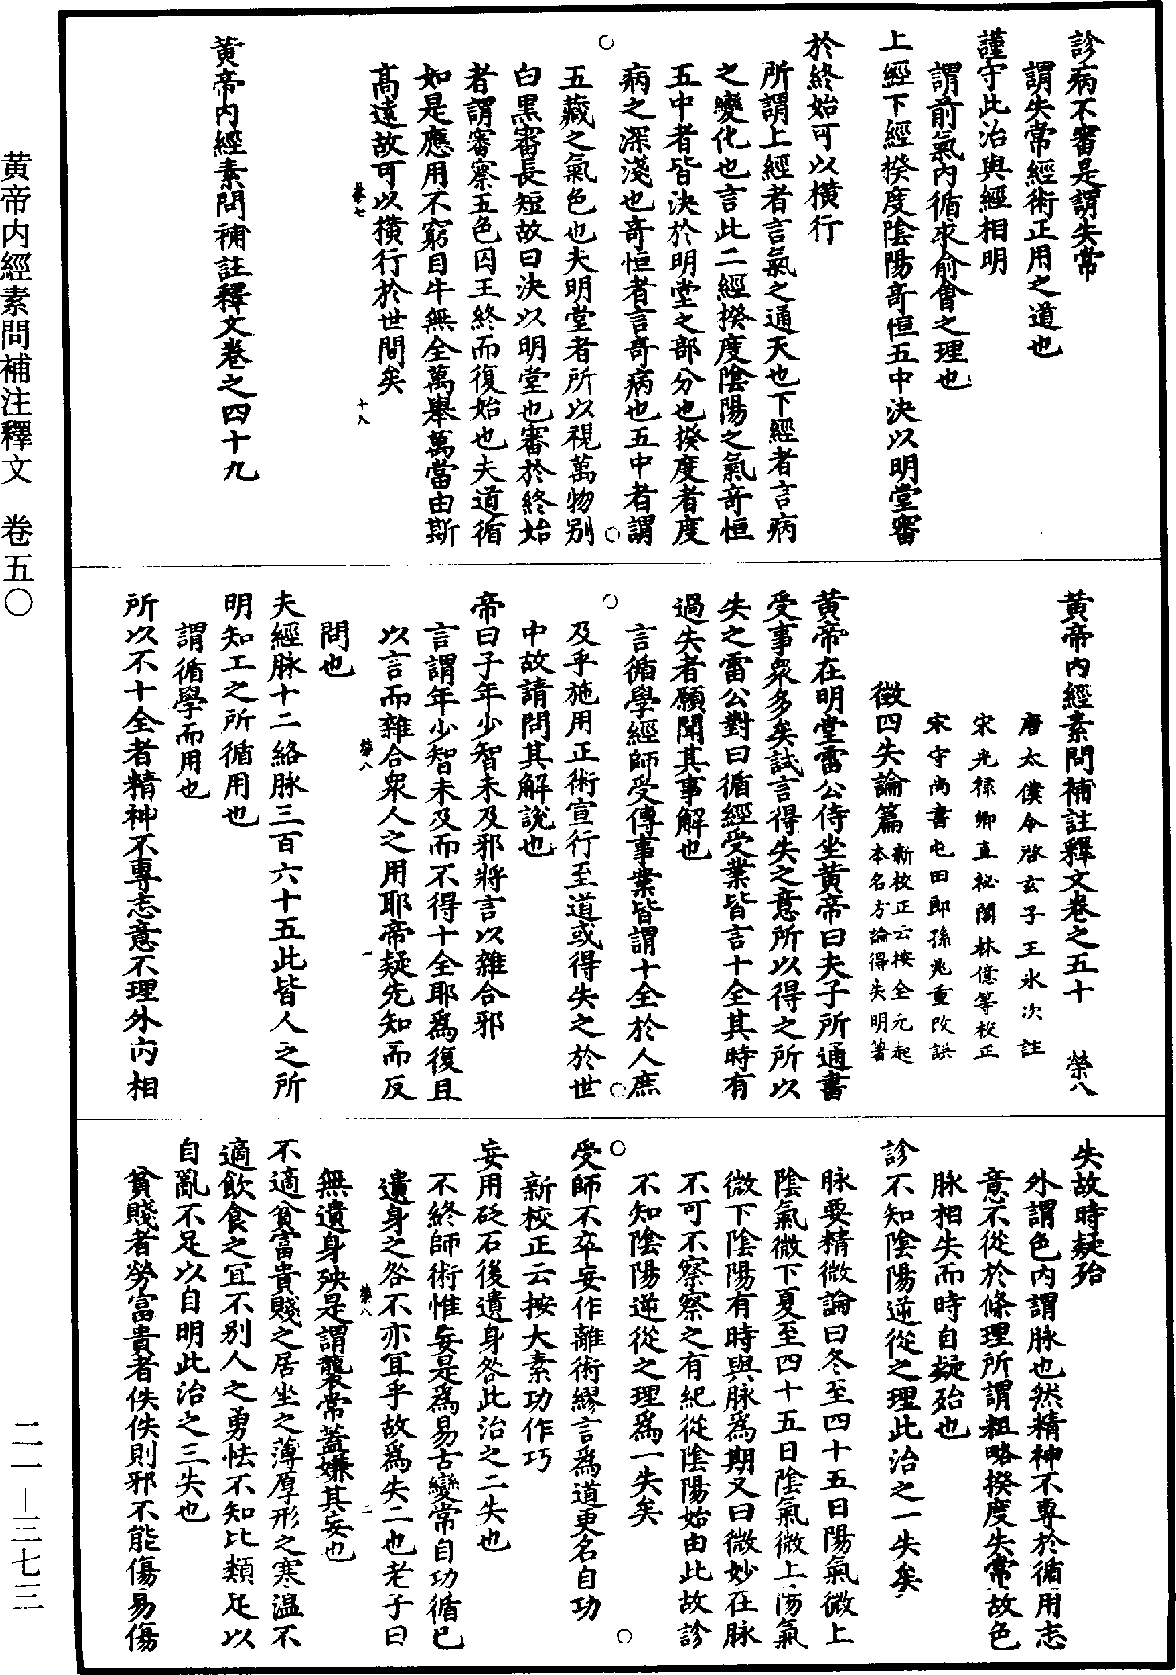 診病不審是謂失常
謂失常經術正用之道也
謹守此治與經相明
謂前氣內循求俞會之理也
上經下經揆度陰陽奇恒五中決以明堂審
於終始可以橫行
所謂上經者言氣之通天也下經者言病
之變化也言此二經揆度陰陽之氣奇恒
五中者皆決於明堂之部分也揆度者度
病之深淺也奇恒者言奇病也五中者謂
五藏之氣色也夫明堂者所以視萬物別
白黑審長短故曰決以明堂也審於終始
者謂審察五色囚王終而復始也夫道循
如是應用不窮目牛無全萬舉萬當由斯
高遠故可以橫行於世間矣
榮七
十八
黄帝內經素問補註釋文卷之四十九
黄帝內經素問補註釋文卷之五十 榮八
唐太僕令啓玄子王冰次註
宋光禄卿直祕閣林億等校正
宋守尚書屯田郎孫兆重改誤
徵四失論篇 新校正云按全元起
本名方論得失明著
黄帝在明堂雷公侍坐黄帝曰夫子所通書
受事衆多矣試言得失之意所以得之所以
失之雷公對曰循經受業皆言十全其時有
過失者願聞其事解也
言循學經師受傳事業皆謂十全於人庶
及乎施用正術宣行至道或得失之於世
中故請問其解說也
帝曰子年少智未及邪將言以雜合邪
言謂年少智未及而不得十全耶爲復且
以言而雜合衆人之用耶帝疑先知而反
榮八
一
問也
夫經脉十二絡脉三百六十五此皆人之所
明知工之所循用也
謂循學而用也
所以不十全者精神不專志意不理外內相
失故時疑殆
外謂色內謂脉也然精神不專於循用志
意不從於條理所謂粗略揆度失常故色
脉相失而時自疑殆也
診不知陰陽逆從之理此治之一失矣
脉要精微論曰冬至四十五日陽氣微上
陰氣微下夏至四十五日陰氣微上陽氣
微下陰陽有時與脉爲期又曰微妙在脉
不可不察察之有紀從陰陽始由此故診
不知陰陽逆從之理爲一失矣
受師不卒妄作離術繆言爲道更名自功
新校正云按太素功作巧
妄用砭石後遺身咎此治之二失也
不終師術惟妄是爲易古變常自功循已
遺身之咎不亦宜乎故爲失二也老子曰
榮八
二
無遺身殃是謂襲常蓋嫌其妄也
不適貧富貴賤之居坐之薄厚形之寒溫不
適飲食之宜不別人之勇怯不知比類足以
自亂不足以自明此治之三失也
貧賤者勞富貴者佚佚則邪不能傷易傷
黄帝内經素問補注釋文 卷五〇
二一—三七三